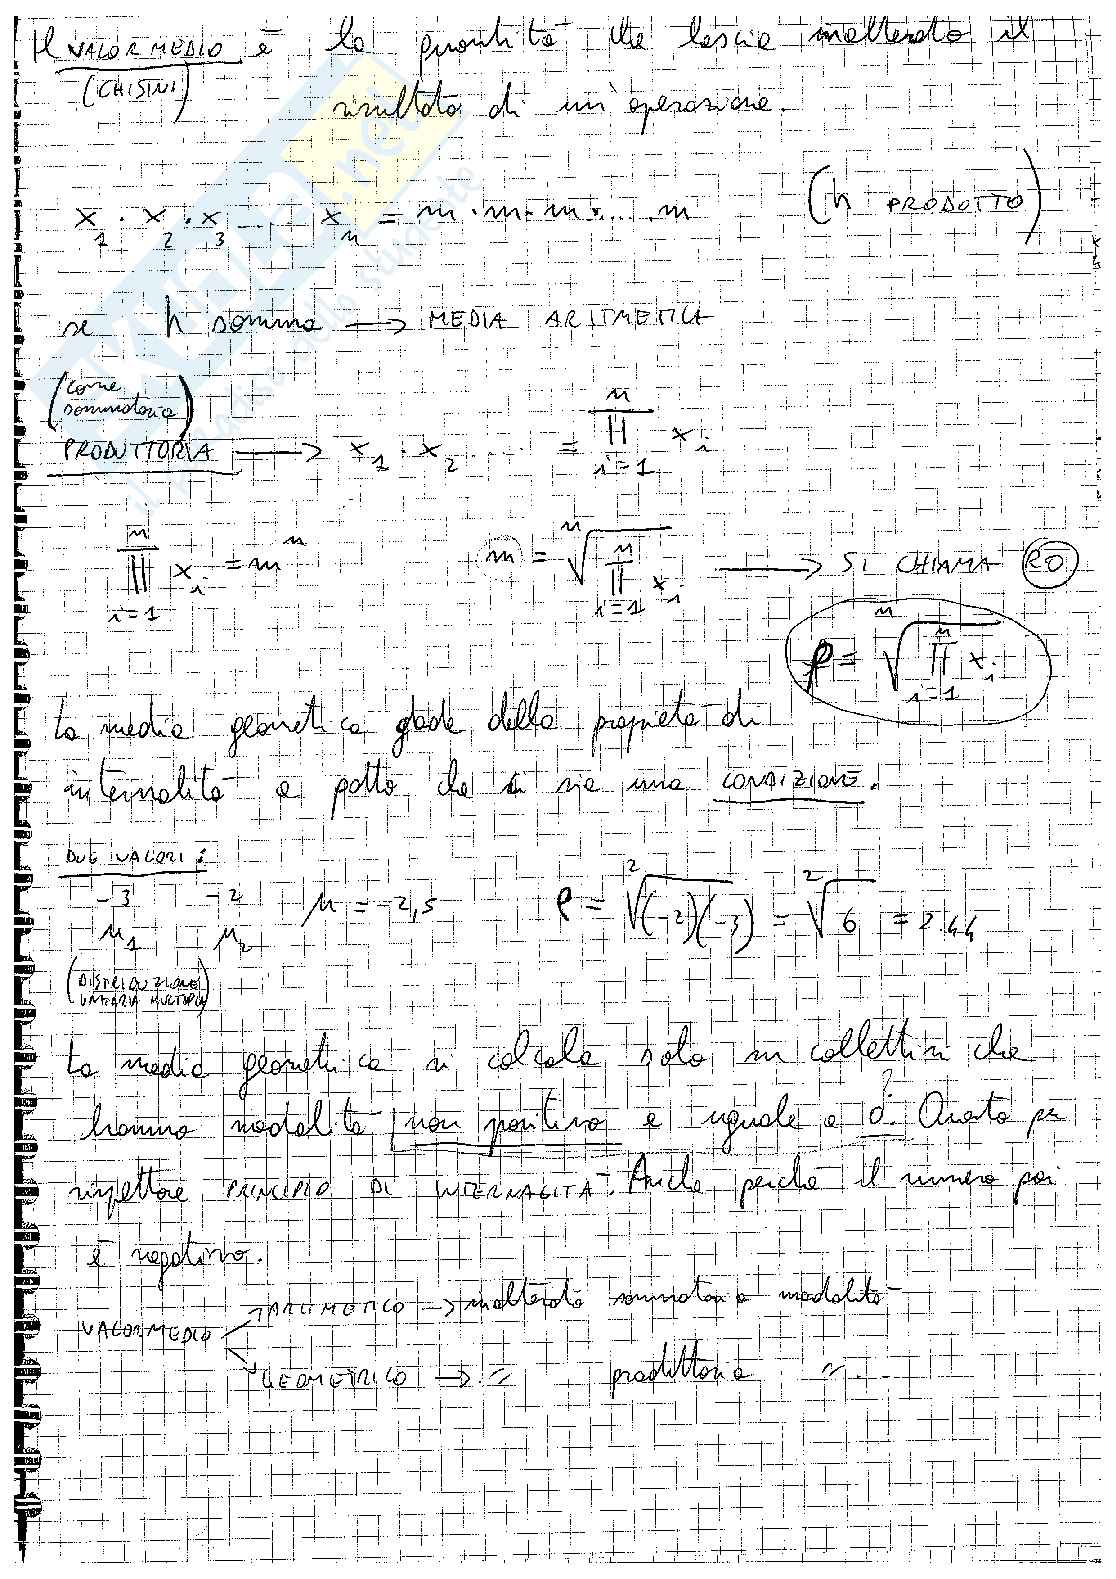 Il VALOR MEDIO è la quantità che lascia inalterato il
(CHISINI)
risultato di un'operazione.
x1 · x2 · x3 .... xn = m · m · m · ... m (h PRODOTTO)
se h somma → MEDIA ARITMETICA
(come sommatoria)
PRODUTTORIA → x1 · x2 ..... = n∏i=1 xi
n∏i=1 xi = m^n m = n√ n∏i=1 xi → SI CHIAMA RO
ρ = n√ n∏i=1 xi
La media geometrica gode della proprietà di
internalità a patto che ci sia una CONDIZIONE.
DUE VALORI:
-3 -2 μ = -2,5 ρ = 2√(-2)(-3) = 2√6 = 2.44
μ1 μ2
(DISTRIBUZIONE
UNITARIA MULTIPLA)
La media geometrica si calcola solo in collettivi che
hanno modalità non positiva e uguale a 0. ? Questo per
rispettare PRINCIPIO DI INTERNALITÀ. Anche perché il numero poi
è negativo.
VALOR MEDIO → ARITMETICO → inalterata sommatoria modalità
→ GEOMETRICO → " produttoria "